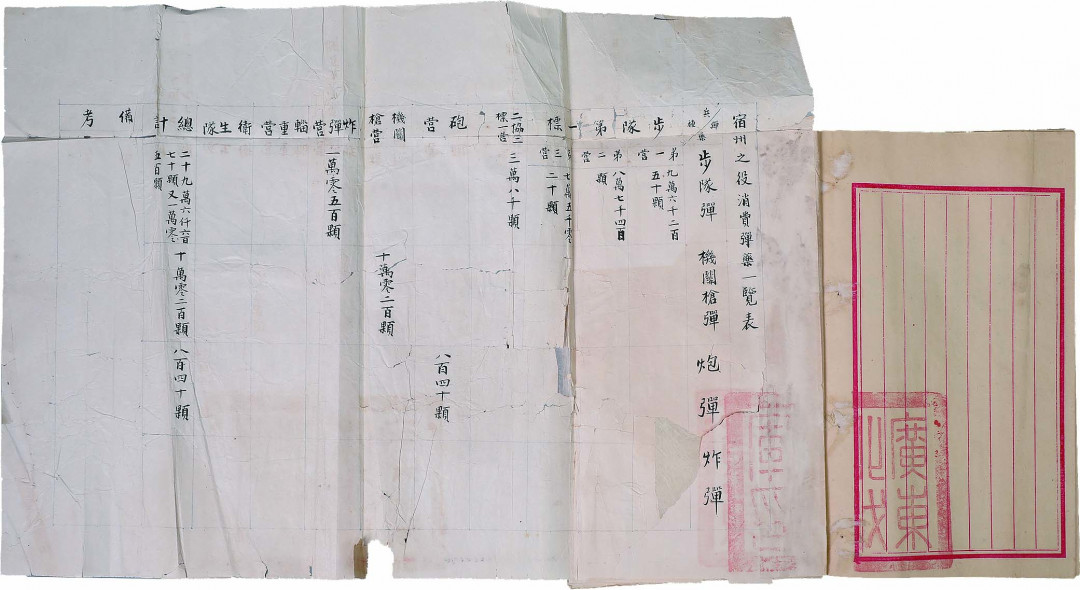 廣東
宿州之役消費彈藥一覽表
步隊彈 機關槍彈 炮彈 炸彈
步隊第一標
第一營
九萬六千二百
五十顆
第二營
八萬七千四百
顆
第三營
七萬五千零
二十顆
二協三
標一營
三萬八千顆
砲營
八百四十顆
機關
槍營
十萬零二百顆
炸彈營
一萬零五百顆
輜重營
衛生隊
總計
二十九萬六仟六百
七十顆又一萬零
五百顆
十萬零二百顆
八百四十顆
備考